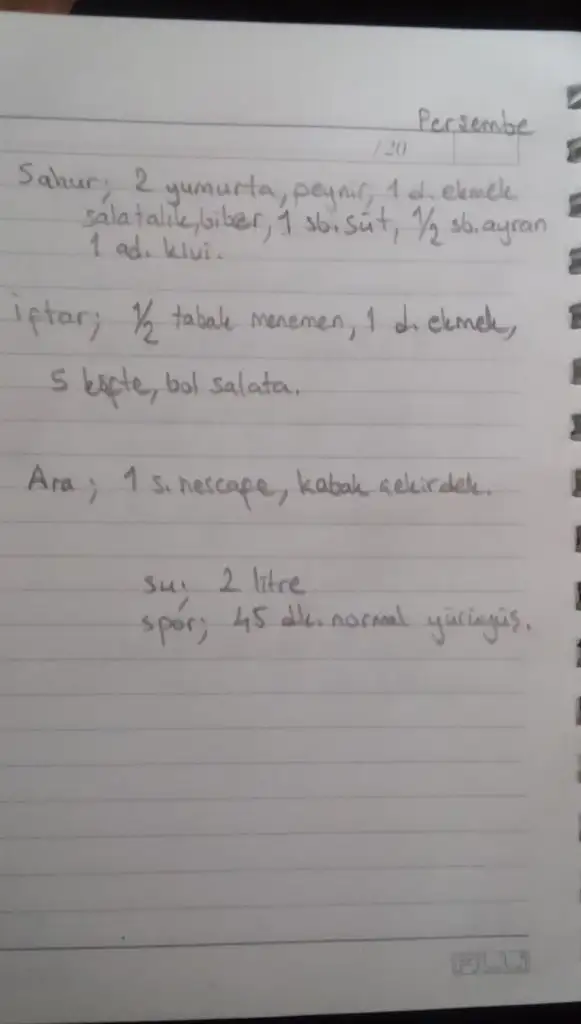 Perşembe
/20
Sahur; 2 yumurta, peynir, 1 d. ekmek
salatalık, biber, 1 sb. süt, 1/2 sb. ayran
1 ad. kivi.
iftar; 1/2 tabak menemen, 1 d. ekmek,
5 köfte, bol salata.
Ara; 1 s. nescafe, kabak çekirdek.
su; 2 litre
spor; 45 dk. normal yürüyüş.